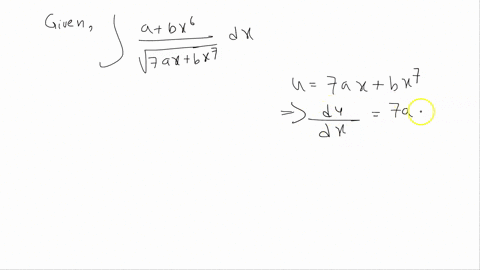 Given, ∫ (a + bx⁶) / √(7ax + bx⁷) dx
u = 7ax + bx⁷
⇒ du/dx = 7a